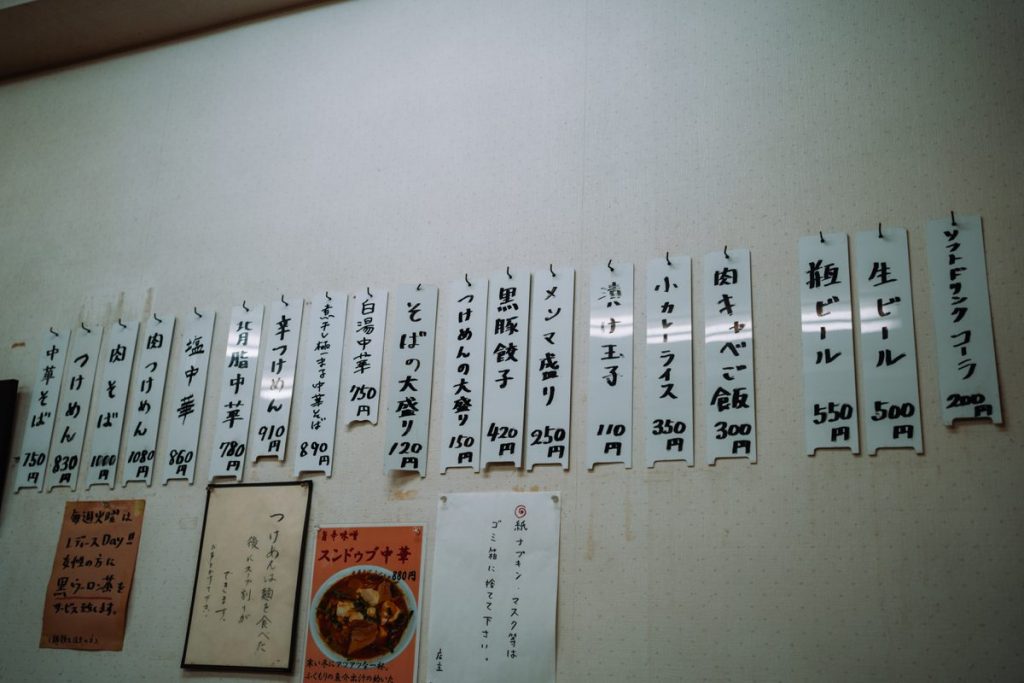 中華そば 750円
つけめん 830円
肉そば 1000円
肉つけめん 1080円
塩中華 860円
背脂中華 780円
辛つけめん 910円
煮干し極
中華そば 890円
白湯中華 750円
そばの大盛り 120円
つけめんの大盛り 150円
黒豚餃子 420円
メンマ盛り 250円
漬け玉子 110円
小カレーライス 350円
肉キャベご飯 300円
瓶ビール 550円
生ビール 500円
ソフトドリンク コーラ 200円
毎週火曜は
レディースDay!!
女性の方に
黒ウーロン茶を
サービス致します。
つけめんは麺を食べた
後にスープ割りが
できます。
旨辛味噌
スンドゥブ中華
880円
寒い冬にアツアツな一杯、
ふくもりの魚介出汁の効いた
紙ナプキン、マスク等は
ゴミ箱に捨てて下さい。
店主